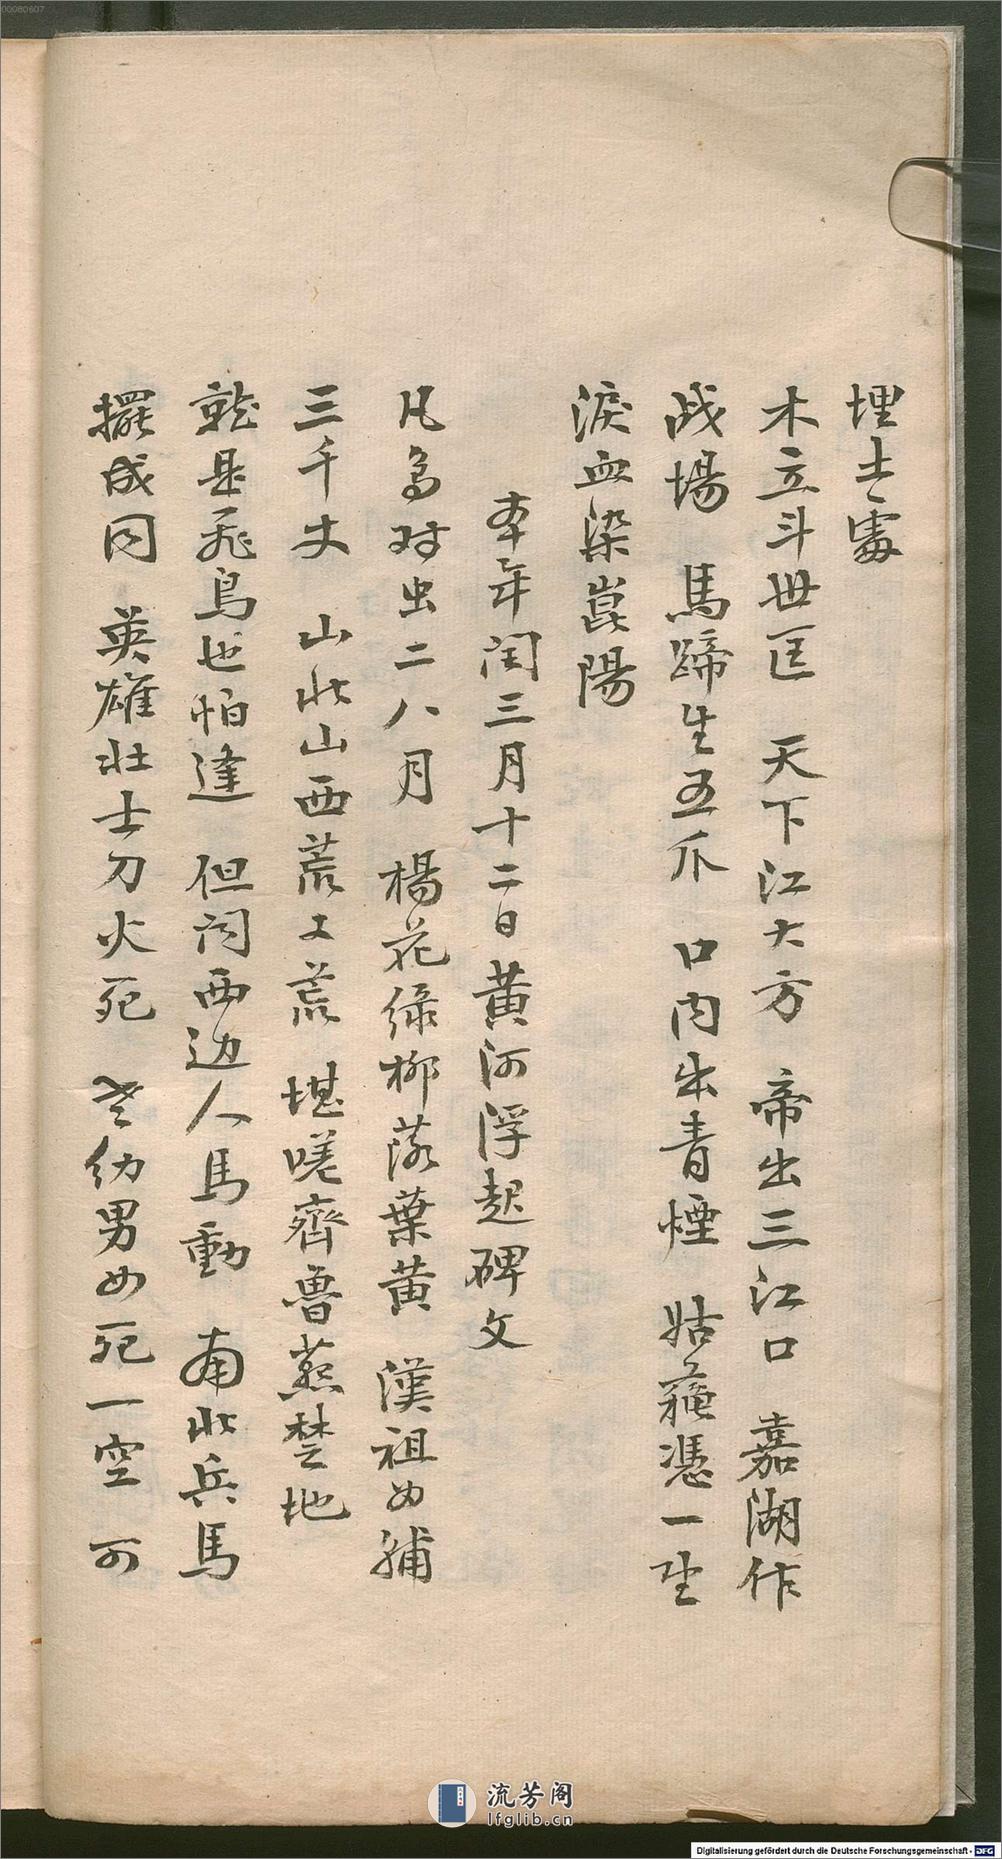 埋士處
木立斗世匡　天下江大方　帝出三江口　嘉湖作
战場　馬蹄生五爪　口内出青煙　姑蘓憑一坒
淚血染崑陽
本年闰三月十二日黄河浮起碑文
凡鳥对虫二八月　楊花绿柳落葉黄　漢祖女
三千丈　山北山西荒又荒　堪嘆齊魯燕楚地
就是飛鳥也怕逢　但闻西边人馬動　南北兵馬
擺成同　英雄壮士刀火死　老幼男女死一空　可
00080607
流芳阁
lfglib.cn
Digitalisierung gefördert durch die Deutsche Forschungsgemeinschaft - DFG